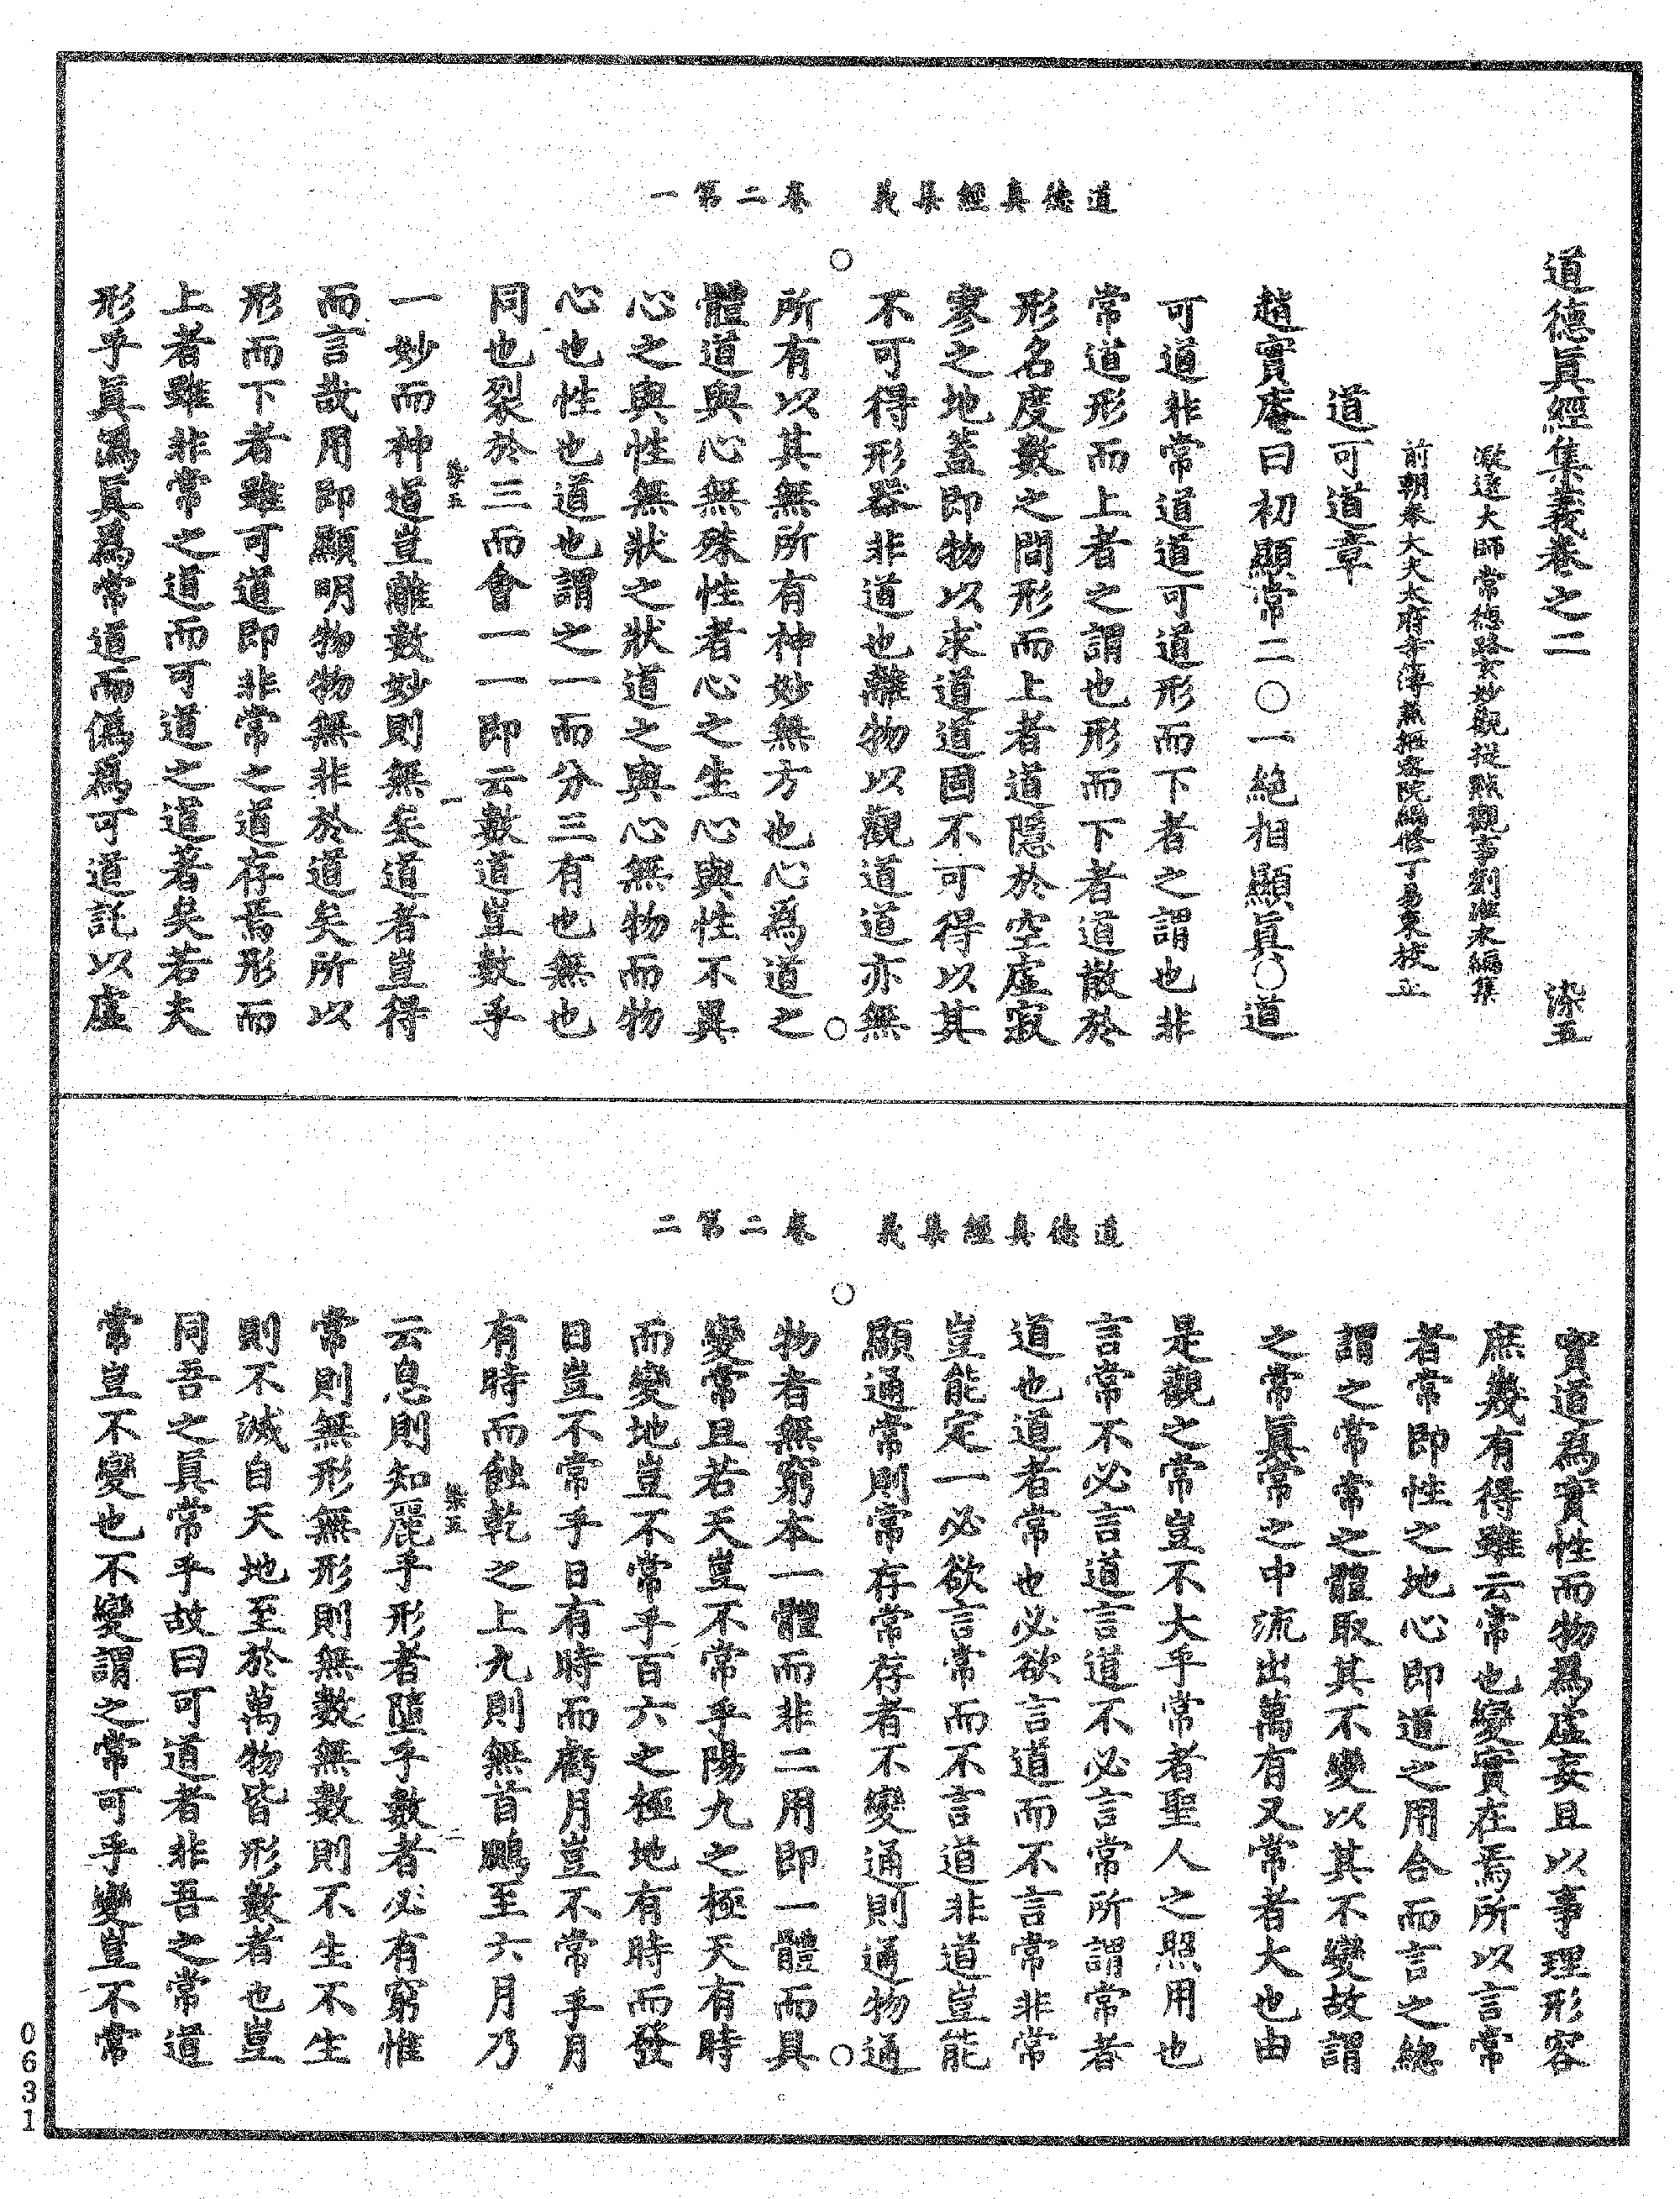 道德真經集義 卷二第一
道德眞經集義卷之二 染五
凝遠大師常德路玄妙觀提點觀事劉惟永編集
前朝奉大夫太府寺簿兼樞密院編修丁易東校正
道可道章
趙實庵曰初顯常二〇一絶相顯眞〇道
可道非常道道可道形而下者之謂也非
常道形而上者之謂也形而下者道散於
形名度數之間形而上者道隱於空虛寂
寥之地蓋即物以求道道固不可得以其
不可得形器非道也離物以觀道道亦無
所有以其無所有神妙無方也心爲道之
體道與心無殊性者心之生心與性不異
心之與性無狀之狀道之與心無物而物
心也性也道也謂之一而分三有也無也
同也裂於三而會一一即云數道豈數乎
染五 一
一妙而神道豈離數妙則無矣道者豈得
而言哉用即顯明物物無非於道矣所以
形而下者雖可道即非常之道存焉形而
上者雖非常之道而可道之道著矣若夫
形乎眞爲眞爲常道而僞爲可道託以虛
道德真經集義 卷二第二
實道爲實性而物爲虛妄且以事理形容
庶幾有得雖云常也變實在焉所以言常
者常即性之地心即道之用合而言之總
謂之常常之體取其不變以其不變故謂
之常眞常之中流出萬有又常者大也由
是觀之常豈不大乎常者聖人之照用也
言常不必言道言道不必言常所謂常者
道也道者常也必欲言道而不言常非常
豈能定一必欲言常而不言道非道豈能
顯通常則常存常存者不變通則通物通
物者無窮本一體而非二用即一體而具
變常且若天豈不常乎陽九之極天有時
而變地豈不常乎百六之極地有時而發
日豈不常乎日有時而虧月豈不常乎月
有時而蝕乾之上九則無首鵬至六月乃
染五 二
云息則知麗乎形者墮乎數者必有窮惟
常則無形無形則無數無數則不生不生
則不滅自天地至於萬物皆形數者也豈
同吾之眞常乎故曰可道者非吾之常道
常豈不變也不變謂之常可乎變豈不常
0631